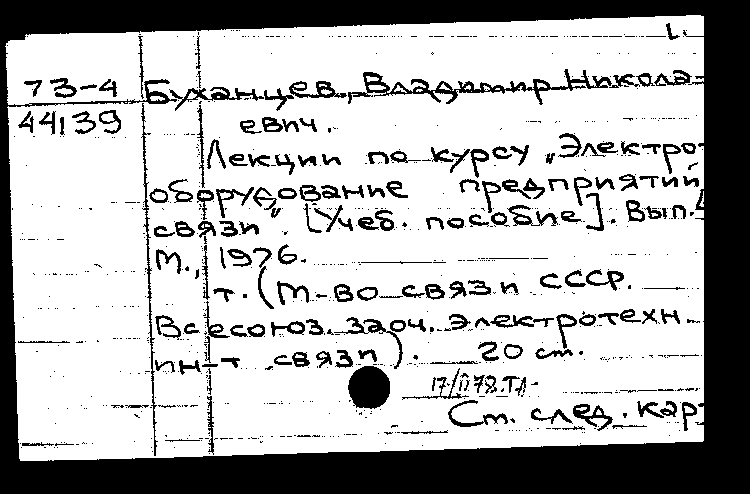 L.
73-4 Буханцев, Владимир Никола-
44139 евич.
Лекции по курсу „Электро-
оборудование предприятий
связи". [Учеб. пособие]. Вып.
М., 1976.
т. (М-во связи СССР.
Всесоюз. заоч. электротехн.
ин-т связи). 20 см.
Ст. след. кар